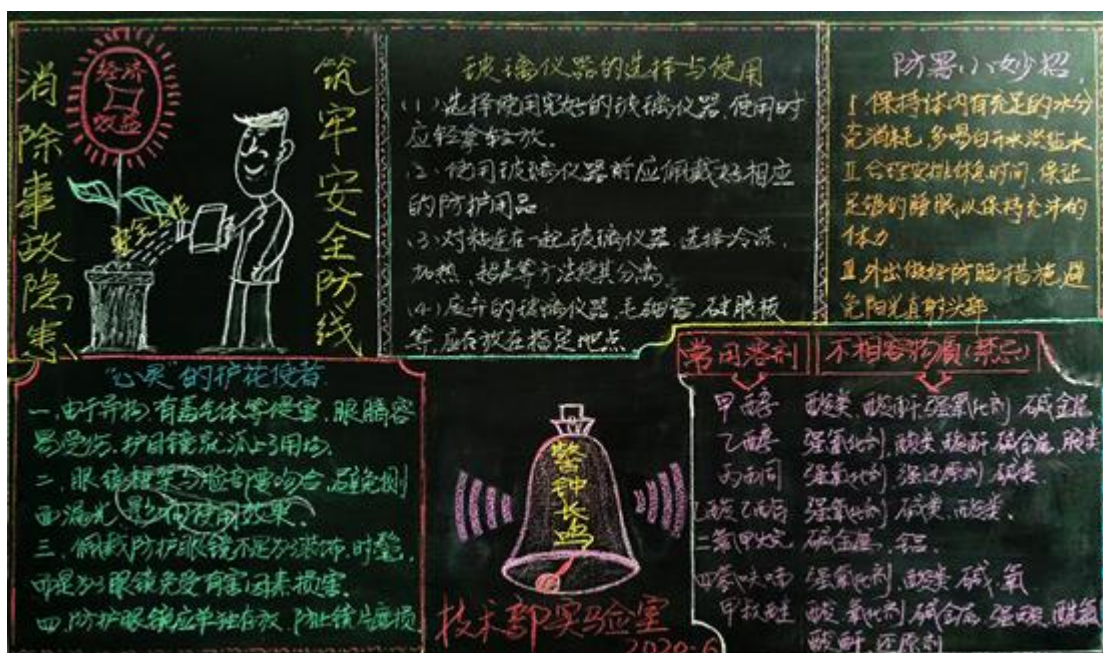 消除事故隐患
经济
效益
筑牢安全防线
玻璃仪器的选择与使用
(1)选择使用完好的玻璃仪器,使用时
应轻拿轻放。
(2、使用玻璃仪器前应佩戴好相应
的防护用品
(3)对粘连在一起玻璃仪器,选择冷冻,
加热,超声等方法使其分离。
(4)废弃的玻璃仪器、毛细管、硅胶板
等,应存放在指定地点
防署小妙招
I 保持体内有充足的水分
充消耗,多喝白开水淡盐水
II 合理安排休息时间,保证
足够的睡眠,以保持充沛的
体力
III 外出做好防晒措施,避
免阳光直射头部
"心灵"的护花使者
一、由于异物,有毒气体等侵害,眼睛容
易受伤,护目镜就派上了用场。
二、眼镜框架与脸部要吻合,避免侧
面漏光,影响使用效果。
三、佩戴防护眼镜不是为了装饰,时髦,
而是为了眼镜免受有害因素损害
四、防护眼镜应单独存放,防止镜片磨损
警钟长鸣
技术部实验室
2020.6
常用溶剂 不相容物质(禁忌)
甲醇 酸类、酸酐、强氧化剂、碱金属
乙醇 强氧化剂、酸类、酸酐、碱金属、胺类
丙酮 强氧化剂 强还原剂 碱类
乙酸乙酯 强氧化剂、碱类、酸类。
二氯甲烷 碱金属、铝。
四氢呋喃 强氧化剂、酸类、碱、氧
甲叔醚 酸、氧化剂、碱金属、强酸、酰氯
酸酐、还原剂